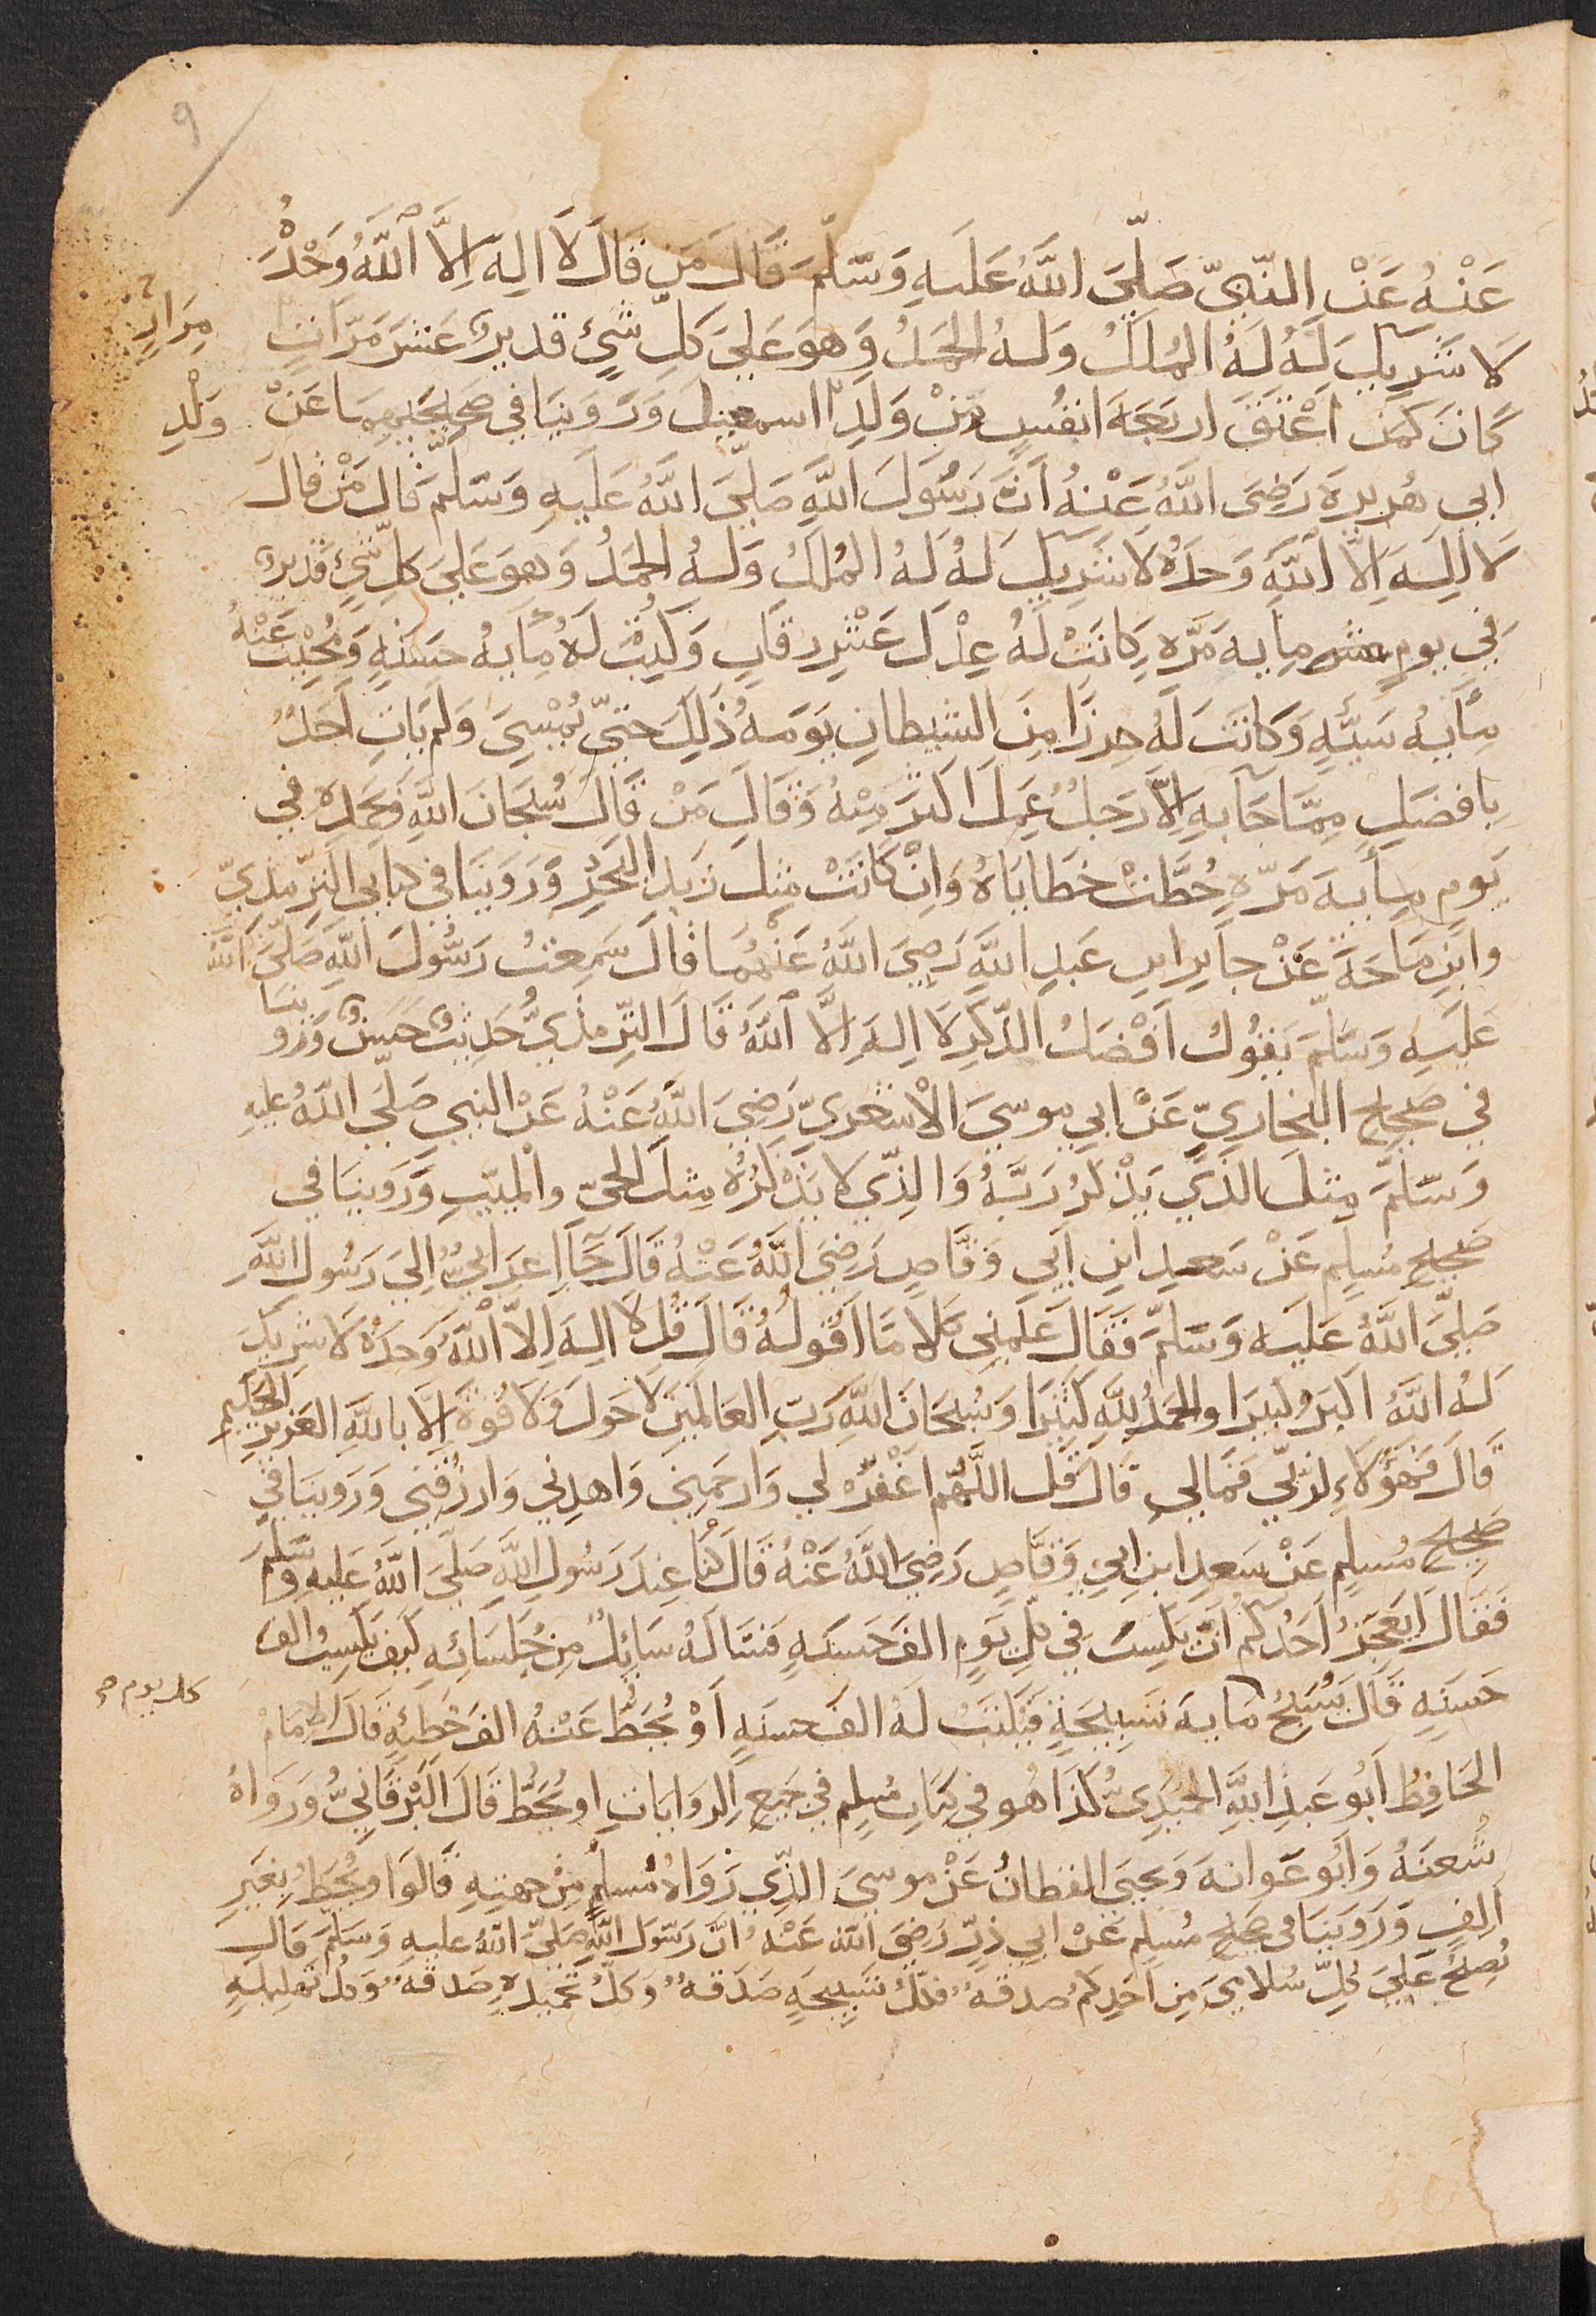 9
عَنْهُ عَنْ النّبِيّ صَلّيَ اللَّهُ عَلَيهِ وَسَلّمَ قَالَ مَن قَالَ لَا اِلهَ اِلَّا اللَّهُ وَحْدَهُ
لَا شَرِيكَ لَهُ لَهُ المُلكُ وَلَهُ الحَمدُ وَهوَ عَلَي كلِ شَيٍ قديرٌ عَشرَ مَرّاتٍ
مِرَارٍ
كَانَ كَمَن اَعْتَقَ اربَعَةَ انفُسٍ مِنْ وَلَدِ اسمعيلَ وَرَوَينَا فِي صَحِيحَيهِمَا عَنْ
وَلْدِ
ابي هُريرَةَ رَضِيَ اللَّهُ عَنْهُ اَنَّ رَسُولَ اللَّهِ صَلّيَ اللَّهُ عَلَيهِ وَسَلّمَ قَالَ مَنْ قالَ
لَا اِلهَ اِلّا اللَّهُ وَحدَهُ لَا شَرِيكَ لَهُ لَهُ المُلكُ وَلَهُ الحَمدُ وَهوَ عَلَي كلِّ شَيٍ قَديرٌ
فِي يومٍ مِايه مَرَّه كَانَتْ لَهُ عِدْلَ عَشْرِ رِقَابٍ وَكُتِبَتْ لَهُ مِايهُ حَسَنَهٍ وَمُحِيَتْ عَنْهُ
مِأيهُ سَيّئَهٍ وَكَانَتَ لَهُ حِرزًا مِنَ الشيطانِ يَومَهُ ذَلِكَ حَتّي يُمْسِيَ وَلم يَاتِ اَحَدٌ
بِافضَلَ مِمَّا جَا بِهِ اِلّا رَجلٌ عَمِلَ اَكثَرَ مِنهُ وَقَالَ مَنْ قَالَ سُبحَانَ اللَّهِ وَبحَمدِهِ فِي
يَومٍ مِأيهَ مَرّهٍ حُطَّتْ خطَايَاهُ وَاِنْ كَانَتْ مِثلَ زَبدِ البَحرِ وَرَوَينَا فِي كِتَابي التِّرمِذيّ
وابْنِ مَاجَهَ عَنْ جَابرِ ابنِ عَبدِ اللَّهِ رَضِيَ اللَّهُ عَنْهُمَا قَالَ سَمِعتُ رَسُولَ اللَّهِ صَلّيَ اللَّهُ
عَلَيهِ وَسَلّمَ يَقُولُ اَفْضَلُ الذّكرِ لَا اِلهَ اِلَّا اللَّهُ قَالَ التّرمذيُّ حَدِيثٌ حَسَنٌ وَرَوينَا
فِي صَحِيحِ البخَاريّ عَنْ ابي مُوسيَ الاَشعَريّ رَضِيَ اللَّهُ عَنْهُ عَنْ النّبي صَلّي اللّهُ عليهِ
وَسَلّمَ مِثلُ الّذيَ يَذْكُرُ رَبَّهُ وَالذّي لَا يَذْكُرُهُ مِثلُ الحيّ وَالمَيّتِ وَرَوينَا فِي
صَحِيحِ مُسلِم عَنْ سَعدِ ابنِ اَبِي وَقّاصٍ رَضِيَ اللَّهُ عَنْهُ قَالَ جَا اَعرَابِيٌّ اِليَ رَسُولِ اللَّهِ
صَلّيَ اللَّهُ عَلَيه وَسَلّمَ فَقَالَ عَلّمني كَلَامًا اَقُولُهُ قَالَ قُل لَا اِلهَ اِلاّ اللَّهُ وَحدَهُ لَا شَرِيكَ
لَهُ اللَّهُ اكبَرُ كَبيرَا وَالحَمدُ لِلَّهِ كَثيرَا وَسُبحَانَ اللَّهِ رَبِّ العَالَمينَ لَا حَولَ وَلَا قُوةَ اِلّا بِاللَّهِ العَزيزِ الحَكِيمِ
قَالَ فَهؤُلَاءِ لِرَبّي فَمَا لِي قَالَ قُل اللَّهُمّ اغْفِرْ لي وَارحَمني وَاهدِني وَارزُقني وَرَوينَا فِي
صَحِيحِ مُسلِمٍ عَنْ سَعدِ ابنِ ابي وَقّاصٍ رَضِيَ اللَّهُ عَنْهُ قَالَ كُنّا عِندَ رَسُولِ اللَّهِ صَلّيَ اللَّهُ عَليهِ وَسَلّمَ
فَقَالَ اَيَعجَزُ اَحَدُكُم اَنْ يَكسِبَ فِي كلِّ يَومٍ الفَ حَسَنَهٍ فَسَالَهُ سَائِلٌ مِن جُلَسَائِهِ كَيفَ يَكسِبُ الفَ
كل يوم صح
حَسَنَهٍ قَالَ يُسَبّحُ مَايهَ تَسبيحَةٍ فَتُكتَبُ لَهُ الفُ حسَنَهٍ اَوْ يُحَطُّ عَنْهُ الفُ خَطِيّهٍ قَالَ الاِمَامُ
الحَافِظُ اَبُو عَبدِ اللَّهِ الحُمَيدِيُّ كَذَا هُو فِي كِتَابِ مُسلِم فِي جَميعِ الرّوَايَاتِ او يُحَطّ قَالَ البَرْقَانِيُّ وَرَوَاهُ
شُعبَهُ وَاَبُو عَوَانهَ وَيحيَي القَطّانُ عَنْ موسيَ الذّي رَوَاهُ مُسلمٌ مِنْ جِهَتِهِ قَالوَا وَيُحَطُّ بِغَيرِ
اَلفٍ وَرَوينَا في صَحِيحِ مُسلِم عَنْ ابي ذرٍّ رَضِيَ اللَّه عَنْهُ اَنَّ رَسُولَ اللَّهِ صَلّيَ اللَّهُ عليهِ وَسَلمَ قالَ
يُصبِحُ عَليَ كُلِّ سُلامَيَ مِن اَحَدِكُم صدقهٌ فكلُّ تَسبيحَهٍ صَدَقهٌ وَكلُّ تَحميدَهٍ صَدقَهٌ وَكلُّ تَهليلَهٍ